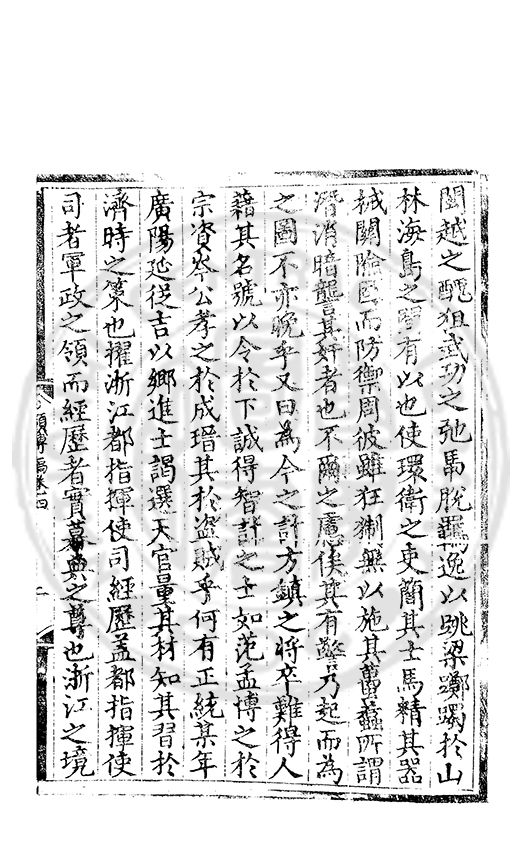 閩越之醜狙武功之弛馬脫羈逸以跳梁躑躅於山
林海島之間有以也使環衛之吏簡其士馬精其器
械關險固而防禦周彼雖狂猘無以施其蠆螫所謂
潛消暗讋其奸者也不爾之慮俟其有警乃起而為
之圖不亦晚乎又曰為今之計方鎮之將卒難得人
藉其名號以令於下誠得智計之士如范孟博之於
宗資岑公孝之於成瑨其於盜賊乎何有正統某年
廣陽延從吉以鄉進士謁選天官量其材知其習於
濟時之策也擢浙江都指揮使司經歷蓋都指揮使
司者軍政之領而經歷者實幕典之尊也浙江之境